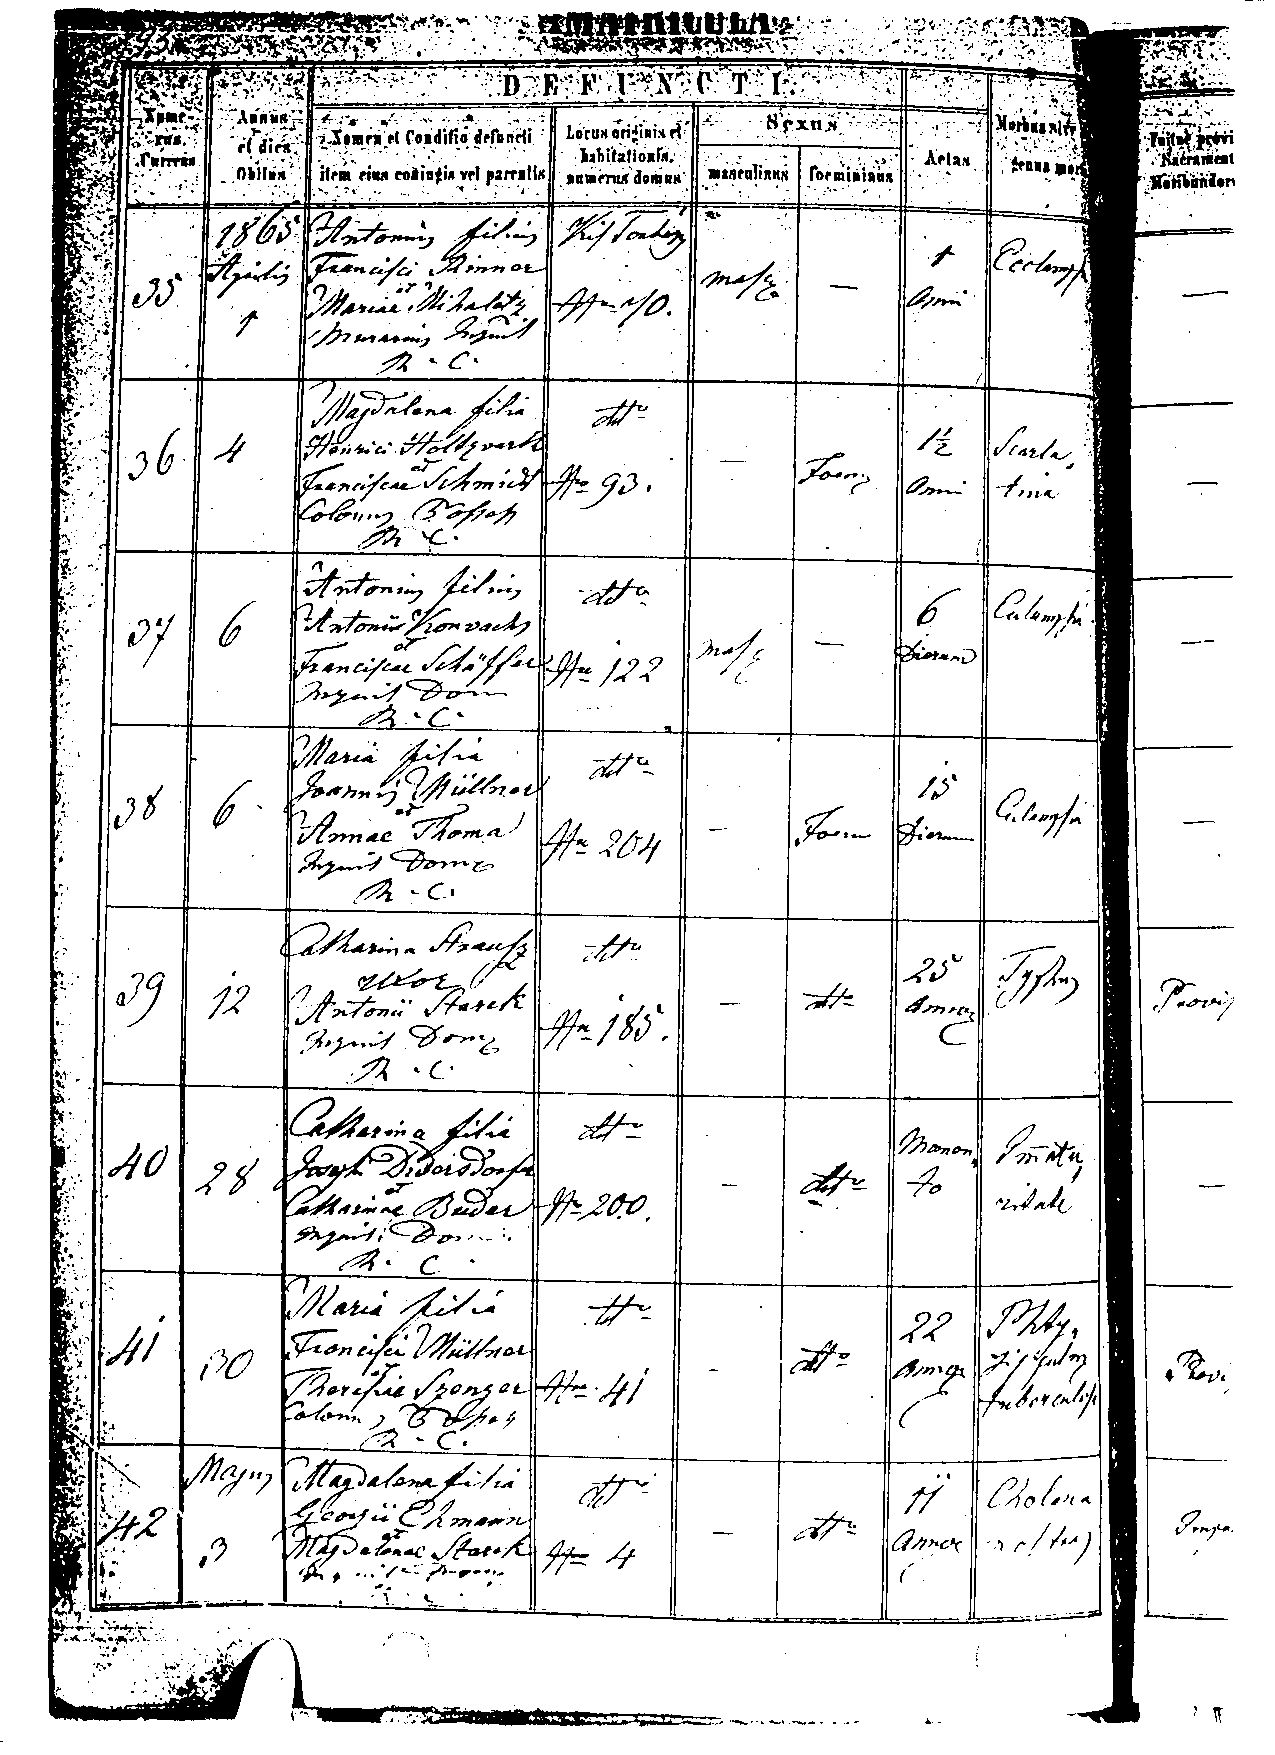 MATRICULA
DEFUNCTI.
Nume-
rus
Currens
Annus
et dies
Obitus
Nomen et Conditio defuncti
item eius coniugis vel parentis
Locus originis et
habitationis,
numerus domus
Sexus
masculinus
foemininus
Aetas
Morbus
genus
Sacrament
35
1865
Aprilis
1
Antonius filius
Francisci Rinner
et
Mariae Mihalatz
Inquil
R. C.
Nro 70.
masc
—
1
Anni
Ecclamps
—
36
4
Magdalena filia
Henrici
et
Franciscae Schmidt
Colonus
R. C.
dtto
Nro 93.
—
Foem
1½
Anni
Scarla,
tina
—
37
6
Antonius filius
Antonii
et
Franciscae Schäffer
Inquil Dom
R. C.
dtto
Nro 122
masc
—
6
Dierum
Eclampsia
—
38
6
Maria filia
Joannis Müllner
et
Annae Thoma
Inquil Dom
R. C.
dtto
Nro 204
—
Foem
15
Dierum
Eclampsia
—
39
12
Catharina Strausz
uxor
Antonii Starek
Inquil Dom
R. C.
dtto
Nro 185.
—
dtto
25
Annor
Typhus
Provis
40
28
Catharina filia
Joseph Didersdorfer
et
Catharinae Buder
Inquil: Dom
R. C.
dtto
Nro 200.
—
dtto
Momen,
to
Immatu,
ritate
—
41
30
Maria filia
Francisci Müllner
et
Theresiae Szenger
Colonus
R. C.
dtto
Nro 41
-
dtto
22
Annor
tuberculos
Provi
42
Majus
3
Magdalena filia
Georgii Ehmann
et
Magdalenae Starek
dtto
Nro 4
—
dtto
11
Annor
Cholera